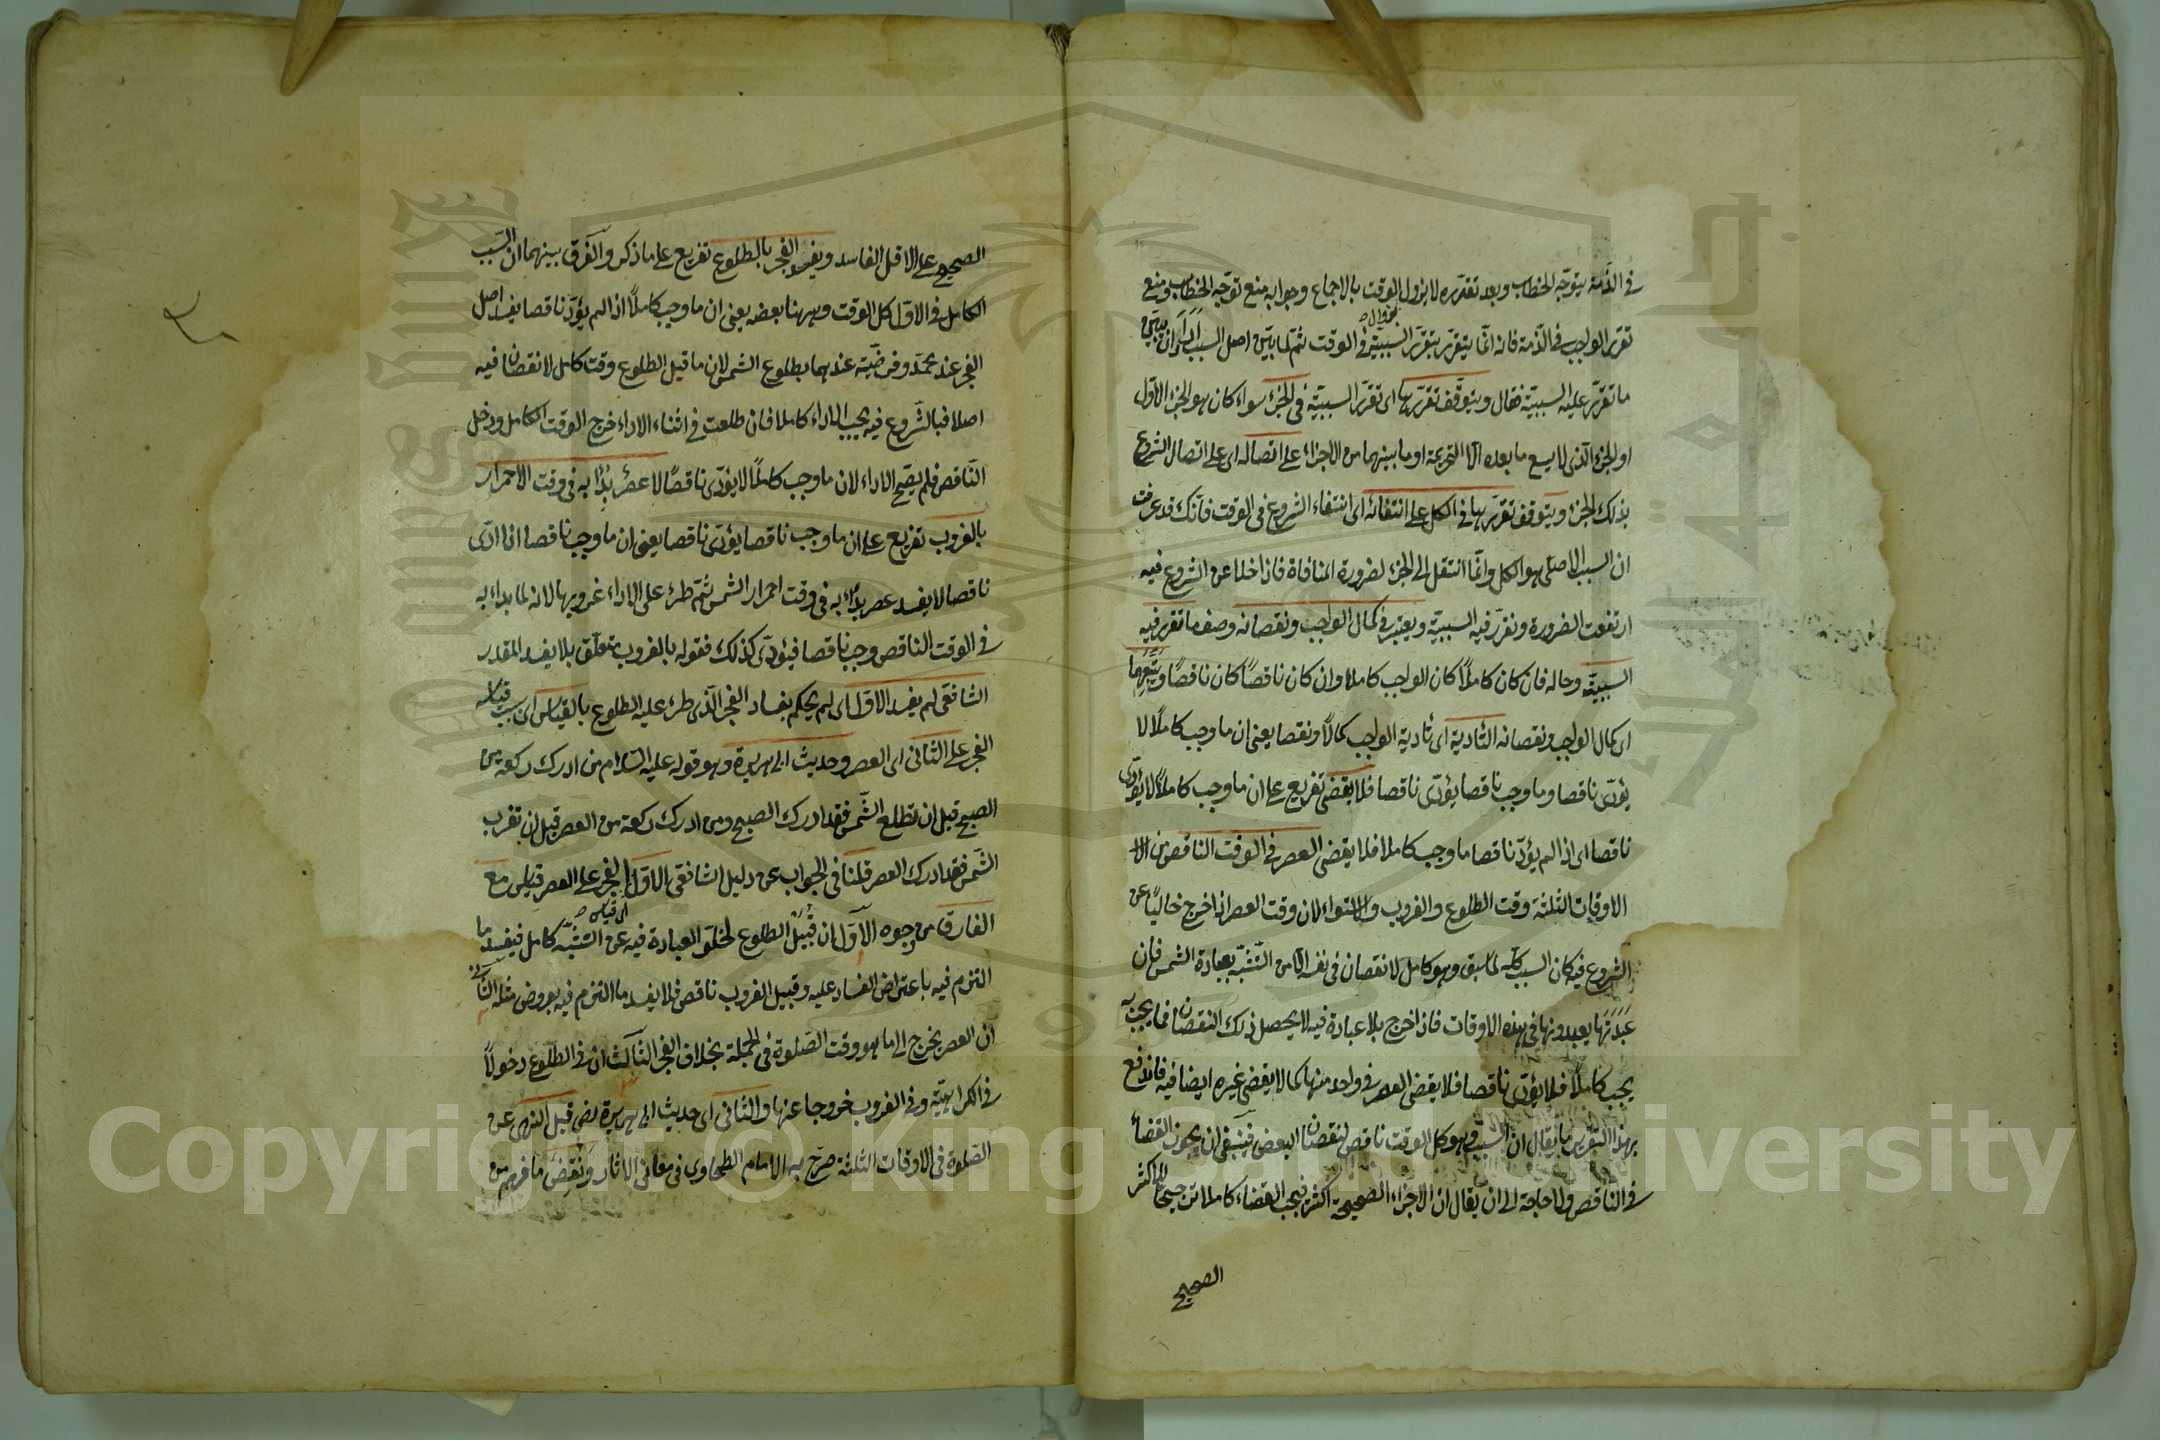 في الذمة يتوجه الخطاب وبعد تقرره لا يزول الوقت بالاجماع وجوابه منع توجه الخطاب ومنع
تقرر الواجب في الذمة فانه انما يتقرر بتقرر السببية في الوقت ثم لما بين اصل السبب اراد ان يبين
ما تقرر عليه السببية فقال ويتوقف تقررها اى تقرر السببية في الجزء سواء كان هو الجزء الاول
او الجزء الذى لا يسع ما بعده الا التحريمة او ما بينهما من الاجزاء على اتصاله اى على اتصال الشروع
بذلك الجزء ويتوقف تقررها في الكل على انتفائه اى انتفاء الشروع في الوقت فانك قد عرفت
ان السبب الاصلى هو الكل وانما انتقل الى الجزء لضرورة المنافاة فاذا خلا عن الشروع فيه
ارتفعت الضرورة وتقرر فيه السببية ويعتبر في كمال الواجب ونقصانه وصف ما تقرر فيه
السببية وحاله فان كان كاملا كان الواجب كاملا وان كان ناقصا كان ناقصا ويتبعهما
اى كمال الواجب ونقصانه التأدية اى تأدية الواجب كمالا ونقصا يعنى ان ما وجب كاملا لا
يؤدى ناقصا وما وجب ناقصا يؤدى ناقصا فلا يقضى تفريع على ان ما وجب كاملا لا يؤدى
ناقصا اى اذا لم يؤد ناقصا ما وجب كاملا فلا يقضى العصر في الوقت الناقص من
الاوقات الثلثة وقت الطلوع والغروب والاستواء لان وقت العصر اذا خرج خاليا عن
الشروع فيه كان السبب كله لما سبق وهو كامل لا نقصان في نفسه الا من التشبه بعبادة الشمس فان
عبدتها يعبدونها في هذه الاوقات فاذا خرج بلا عبادة فيه لا يحصل ذلك النقصان فما يجب به
يجب كاملا فلا يؤدى ناقصا فلا يقضى العصر في واحد منها كما لا يقضى غيره ايضا فيه فاندفع
بهذا التقرير ما يقال ان السبب وهو كل الوقت ناقص لنقصان البعض فينبغى ان يجوز القضاء
في الناقص ولا حاجة الى ان يقال ان الاجزاء الصحيحة اكثر فيجب القضاء كاملا ترجيحا للاكثر
الصحيح
الصحيح على الاقل الفاسد ويفسد الفجر بالطلوع تفريع على ما ذكر والفرق بينهما ان السبب
الكامل في الاول كل الوقت وههنا بعضه يعنى ان ما وجب كاملا اذا لم يؤد ناقصا يفسد اصل
الفجر عند محمد وفرضيته عندهما بطلوع الشمس لان ما قبل الطلوع وقت كامل لا نقصان فيه
اصلا فبالشروع فيه يجب الاداء كاملا فان طلعت في اثناء الاداء خرج الوقت الكامل ودخل
الناقص فلم يصح الاداء لان ما وجب كاملا لا يؤدى ناقصا لا عصر بدأ به في وقت الاحمرار
بالغروب تفريع على ان ما وجب ناقصا يؤدى ناقصا يعنى ان ما وجب ناقصا اذا ادى
ناقصا لا يفسد عصر بدأ به في وقت احمرار الشمس ثم طرء على الاداء غروبها لانه لما بدأ به
في الوقت الناقص وجب ناقصا فيؤدى كذلك فقوله بالغروب متعلق بلا يفسد المقدر
الشافعى لم يفسد الاول اى لم يحكم بفساد الفجر الذى طرء عليه الطلوع بالقياس اى بسبب قياسه
الفجر على الثانى اى العصر وحديث ابى هريرة وهو قوله عليه السلام من ادرك ركعة من
الصبح قبل ان تطلع الشمس فقد ادرك الصبح ومن ادرك ركعة من العصر قبل ان تغرب
الشمس فقد ادرك العصر قلنا في الجواب عن دليل الشافعى الاول اى قياس الفجر على العصر قياس مع
الفارق من وجوه الاول ان قبيل الطلوع لخلو العبادة فيه عن التشبه كامل فيفسد ما
التزم فيه باعتراض الفساد عليه وقبيل الغروب ناقص فلا يفسد ما التزم فيه بعروض مثله الثانى
ان العصر يخرج الى ما هو وقت الصلوة في الجملة بخلاف الفجر الثالث ان في الطلوع دخولا
في الكراهية وفي الغروب خروجا عنها والثانى اى حديث ابى هريرة رضى قبل النهى عن
الصلوة في الاوقات الثلثة صرح به الامام الطحاوى في معانى الاثار ونقض ما فهم من
Copyright © King Saud University